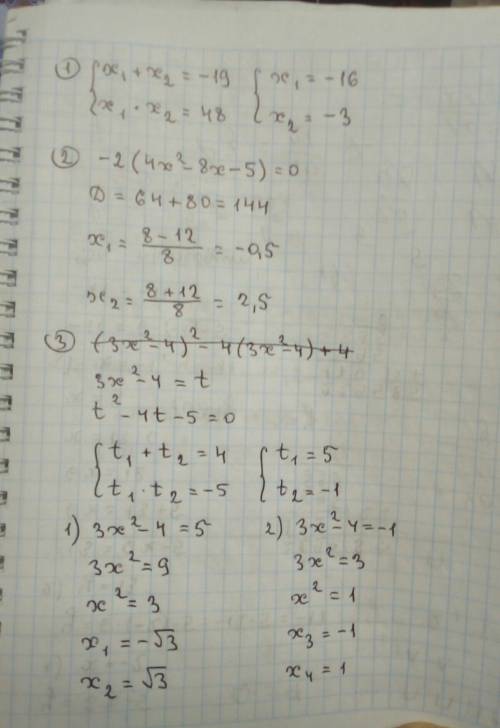 ① { x₁ + x₂ = -19 { x₁ = -16
{ x₁ · x₂ = 48 { x₂ = -3
② -2(4x² - 8x - 5) = 0
D = 64 + 80 = 144
x₁ = (8 - 12)/8 = -0,5
x₂ = (8 + 12)/8 = 2,5
③ (3x² - 4)² - 4(3x² - 4) + 4
3x² - 4 = t
t² - 4t - 5 = 0
{ t₁ + t₂ = 4 { t₁ = 5
{ t₁ · t₂ = -5 { t₂ = -1
1) 3x² - 4 = 5 2) 3x² - 4 = -1
3x² = 9 3x² = 3
x² = 3 x² = 1
x₁ = -√3 x₃ = -1
x₂ = √3 x₄ = 1